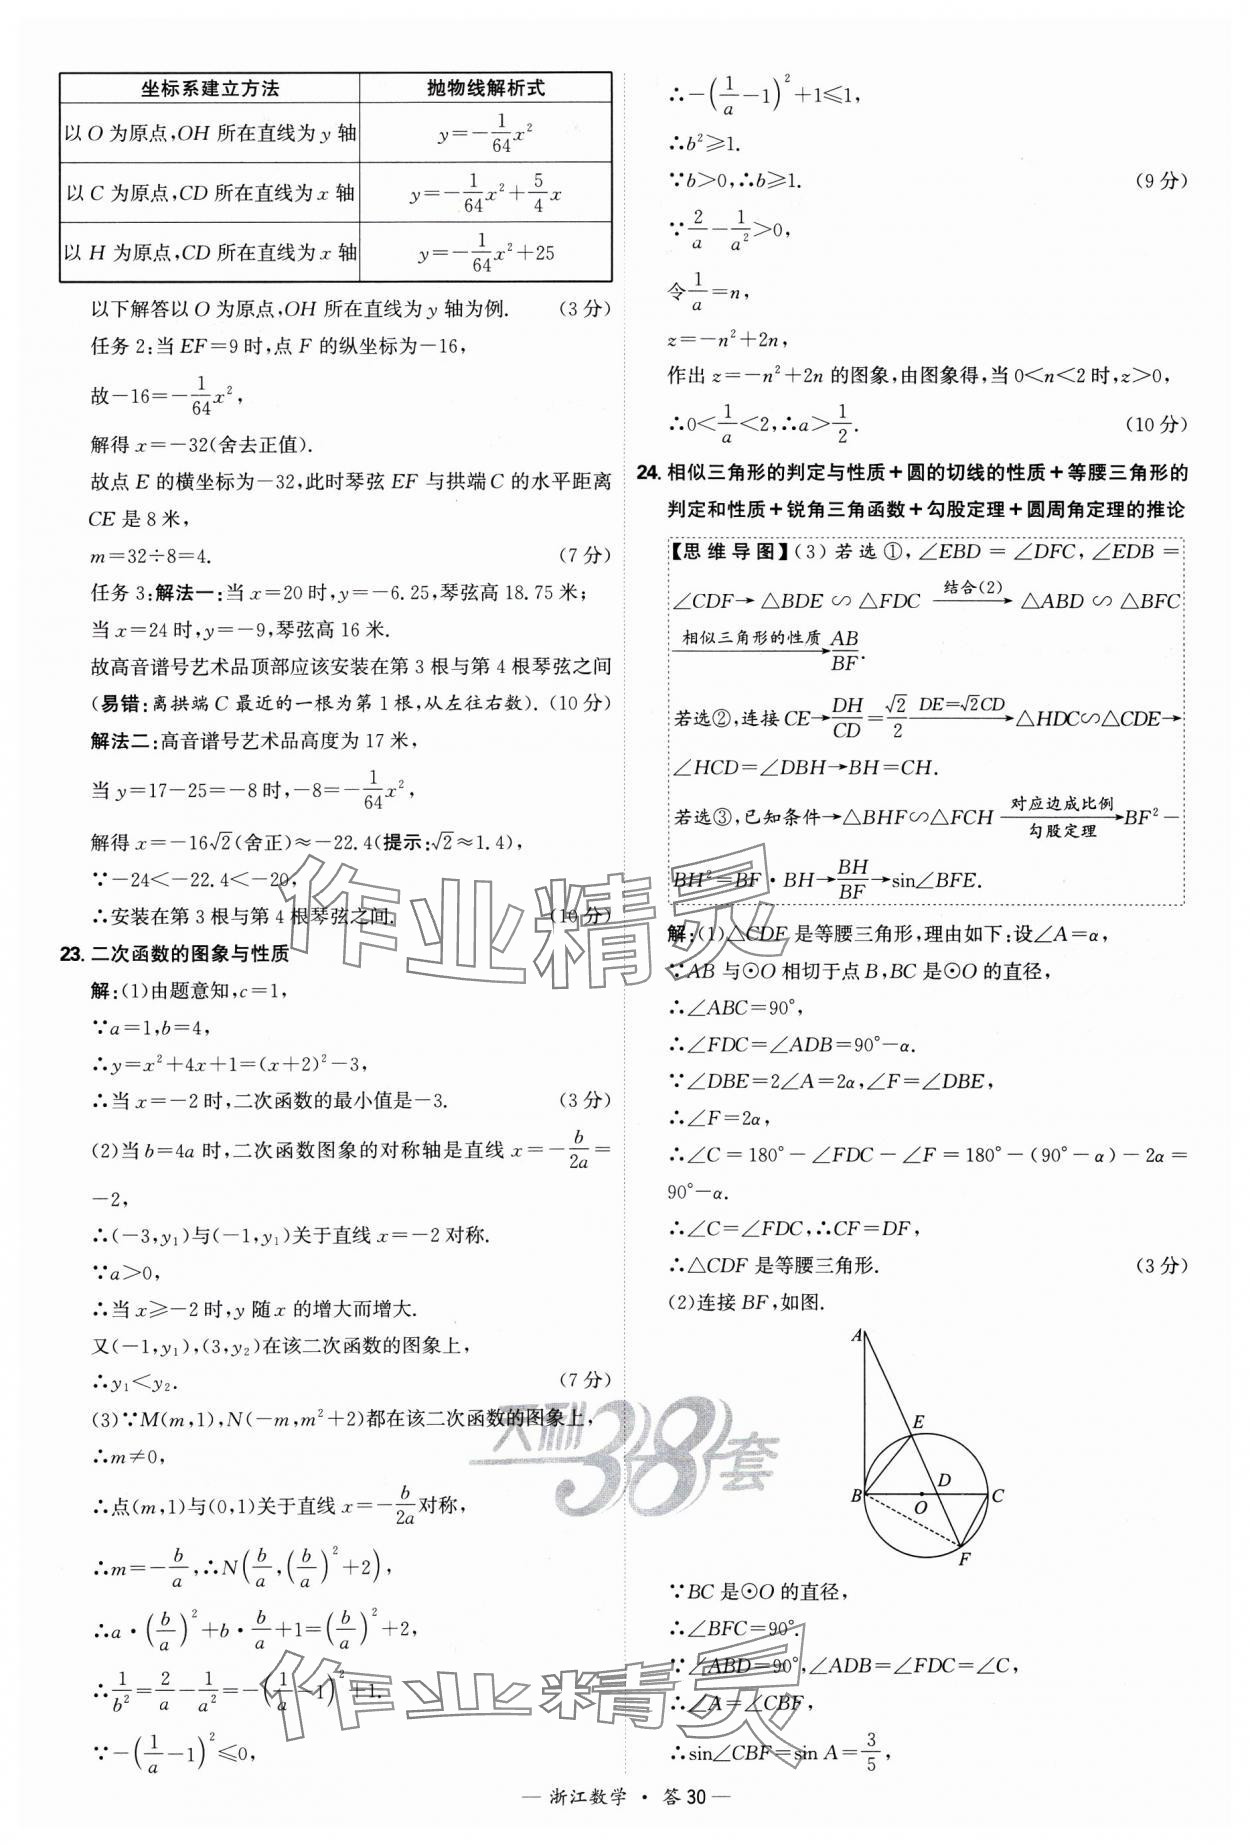 坐标系建立方法 抛物线解析式
以O为原点,OH所在直线为y轴 y=-1/64x²
以C为原点,CD所在直线为x轴 y=-1/64x²+5/4x
以H为原点,CD所在直线为x轴 y=-1/64x²+25
以下解答以O为原点,OH所在直线为y轴为例. (3分)
任务2:当EF=9时,点F的纵坐标为-16,
故-16=-1/64x²,
解得x=-32(舍去正值).
故点E的横坐标为-32,此时琴弦EF与拱端C的水平距离
CE是8米,
m=32÷8=4. (7分)
任务3:解法一:当x=20时,y=-6.25,琴弦高18.75米;
当x=24时,y=-9,琴弦高16米.
故高音谱号艺术品顶部应该安装在第3根与第4根琴弦之间
(易错:离拱端C最近的一根为第1根,从左往右数). (10分)
解法二:高音谱号艺术品高度为17米,
当y=17-25=-8时,-8=-1/64x²,
解得x=-16√2(舍正)≈-22.4(提示:√2≈1.4),
∵-24<-22.4<-20,
∴安装在第3根与第4根琴弦之间. (10分)
23. 二次函数的图象与性质
解:(1)由题意知,c=1,
∵a=1,b=4,
∴y=x²+4x+1=(x+2)²-3,
∴当x=-2时,二次函数的最小值是-3. (3分)
(2)当b=4a时,二次函数图象的对称轴是直线x=-b/2a=
-2,
∴(-3,y₁)与(-1,y₁)关于直线x=-2对称.
∵a>0,
∴当x≥-2时,y随x的增大而增大.
又(-1,y₁),(3,y₂)在该二次函数的图象上,
∴y₁<y₂. (7分)
(3)∵M(m,1),N(-m,m²+2)都在该二次函数的图象上,
∴m≠0,
∴点(m,1)与(0,1)关于直线x=-b/2a对称,
∴m=-b/a,∴N(b/a,(b/a)²+2),
∴a·(b/a)²+b·b/a+1=(b/a)²+2,
∴1/b²=2/a-1/a²=-(1/a-1)²+1.
∵-(1/a-1)²≤0,
∴-(1/a-1)²+1≤1,
∴b²≥1.
∵b>0,∴b≥1. (9分)
∵2/a-1/a²>0,
令1/a=n,
z=-n²+2n,
作出z=-n²+2n的图象,由图象得,当0<n<2时,z>0,
∴0<1/a<2,∴a>1/2. (10分)
24. 相似三角形的判定与性质+圆的切线的性质+等腰三角形的
判定和性质+锐角三角函数+勾股定理+圆周角定理的推论
【思维导图】(3)若选①,∠EBD=∠DFC,∠EDB=
∠CDF→△BDE∽△FDC 结合(2)→△ABD∽△BFC
相似三角形的性质→AB/BF.
若选②,连接CE→DH/CD=√2/2 DE=√2CD→△HDC∽△CDE→
∠HCD=∠DBH→BH=CH.
若选③,已知条件→△BHF∽△FCH 对应边成比例 勾股定理→BF²-
BH²=BF·BH→BH/BF→sin∠BFE.
解:(1)△CDF是等腰三角形,理由如下:设∠A=α,
∵AB与⊙O相切于点B,BC是⊙O的直径,
∴∠ABC=90°,
∴∠FDC=∠ADB=90°-α.
∵∠DBE=2∠A=2α,∠F=∠DBE,
∴∠F=2α,
∴∠C=180°-∠FDC-∠F=180°-(90°-α)-2α=
90°-α.
∴∠C=∠FDC,∴CF=DF,
∴△CDF是等腰三角形. (3分)
(2)连接BF,如图.
A
E
B
O
D
C
F
∵BC是⊙O的直径,
∴∠BFC=90°.
∵∠ABD=90°,∠ADB=∠FDC=∠C,
∴∠A=∠CBF,
∴sin∠CBF=sin A=3/5,
作业精灵
天利38套
作业精灵
— 浙江数学·答30 —